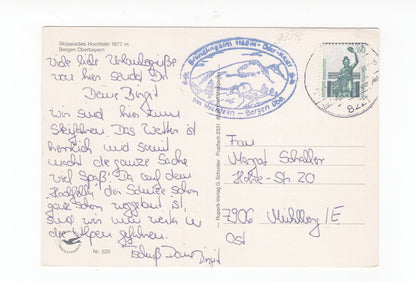 Skiparadies Hochfelln 1677 m
Bergen Oberbayern
Viele liebe Urlaubsgrüße
von hier sendet Dir
Deine Birgit
Wir sind hier zum
Skifahren. Das Wetter ist
herrlich und somit
macht die ganze Sache
viel Spaß. Da auf dem
"Hochfelln" der Schnee schon
ganz schön weggetaut ist,
sind wir nun weiter in
die Alpen gefahren.
Tschüß Deine Birgit
Nr. 520
Bründlingalm 1160 m
am Hochfelln - Bergen Obb.
Rupert-Verlag G. Schuster · Postfach 2331
Frau
Margot
Str. 20
7906
Ost